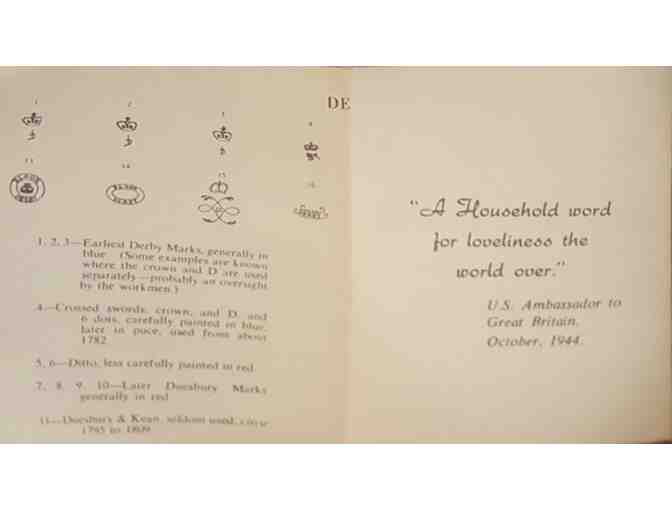 1
2
3
4
DE
13
14
15
BLOOR
DERBY
BLOOR
DERBY
1, 2, 3—Earliest Derby Marks, generally in
blue. (Some examples are known
where the crown and D are used
separately—probably an oversight
by the workmen.)
4—Crossed swords, crown, and D, and
6 dots, carefully painted in blue,
later in puce, used from about
1782
5, 6—Ditto, less carefully painted in red
7, 8, 9, 10—Later Duesbury Marks
generally in red
11—Duesbury & Kean, seldom used, circa
1795 to 1809
"A Household word
for loveliness the
world over."
U.S. Ambassador to
Great Britain,
October, 1944.